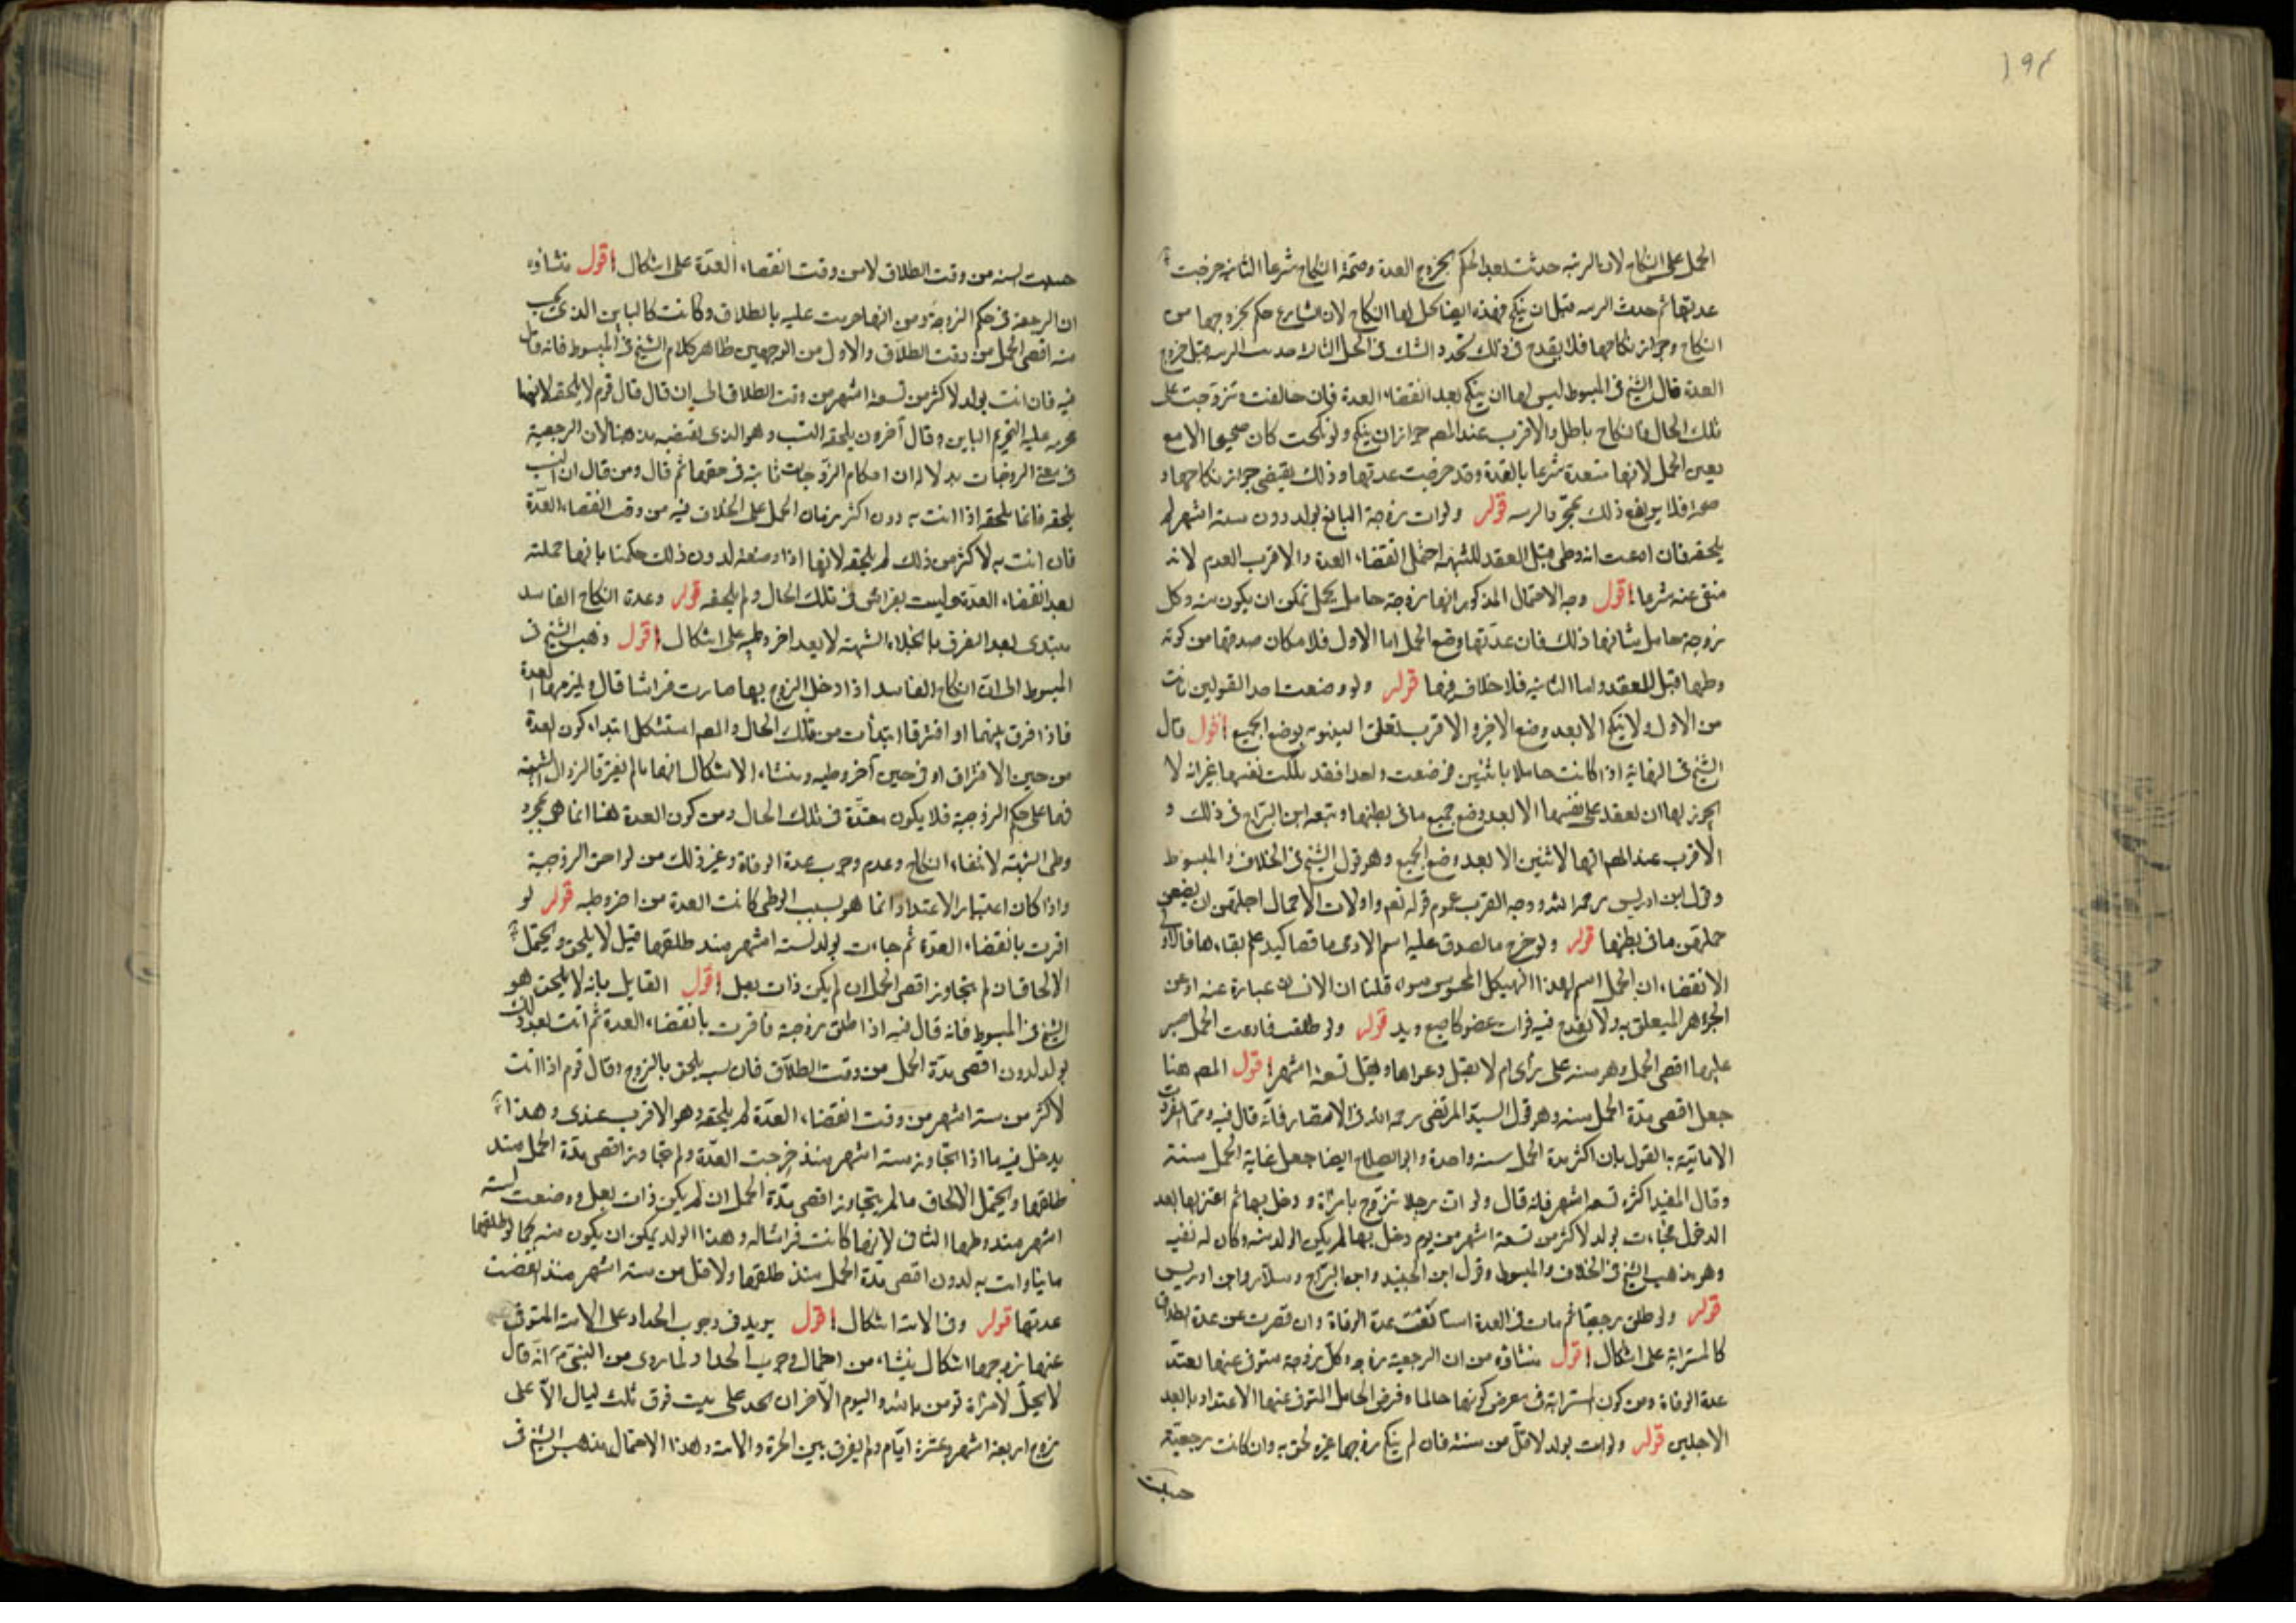 ١٩٤
الحمل على النكاح لان الريبه حدثت بعد الحكم بخروج العدة وصحة النكاح شرعا الثانى خرجت
عدتها ثم حدث الريبه قبل ان ينكح فهذه ايضا يحل لها النكاح لان الشارع حكم بخروجها من
النكاح وجواز نكاحها فلا يقدح فى ذلك تجدد الشك فى الحمل الثالث حدثت الريبه قبل خروج
العدة قال الشيخ فى المبسوط ليس لها ان ينكح بعد انقضاء العدة فان خالفت وتزوجت على
تلك الحال فالنكاح باطل والاقرب عند المصـ جواز ان ينكح ولو نكحت كان صحيحا الا مع
يقين الحمل لانها متعدة شرعا بالعدة وقد خرجت عدتها وذلك يقتضى جواز نكاحها و
صحته فلا يرتفع ذلك بمجرد الريبه قوله ولو اتت زوجة البالغ بولد دون ستة اشهر لم
يلحقه فان ادعت انه وطئ قبل العقد للشبهة احتمل انقضاء العدة والاقرب العدم لانه
منفى عنه شرعا اقول وجه الاحتمال المذكور انها زوجة حامل بحمل يمكن ان يكون منه وكل
زوجة حامل شانها ذلك فان عدتها وضع الحمل اما الاول فلامكان صدقها من كونه
وطئها قبل العقد واما الثانيه فلا خلاف فيها قوله ولو وضعت احد التوامين بانت
من الاول ولا ينكح الا بعد وضع الاخير والاقرب تعلق البينونه بوضع الجميع اقول قال
الشيخ فى النهاية اذا كانت حاملا باثنين فوضعت واحدا فقد ملكت نفسها غير انه لا
يجوز لها ان تعقد على نفسها الا بعد وضع جميع ما فى بطنها وتبعه ابن البراج فى ذلك و
الاقرب عند المصـ انها لا تبين الا بعد وضع الجميع وهو قول الشيخ فى الخلاف والمبسوط
وقول ابن ادريس رحمه الله ووجه القرب عموم قوله تعـ واولات الاحمال اجلهن ان يضعن
حملهن ما فى بطنها قوله ولو خرج ما يصدق عليه اسم الادمى ناقصا كيد علم بقاءها فالاولى
الانقضاء ان الحمل اسم لهذا الهيكل المحسوس سواء قلنا ان الانسان عبارة عنه او عن
الجوهر المتعلق به ولا يقدح فيه فوات عضو كاصبع ويد قوله ولو طلقت فادعت الحمل صبر
عليها اقصى الحمل وهو سنه على رأى ثم لا يقبل دعواها وقيل تسعة اشهر اقول المصـ هنا
جعل اقصى مدة الحمل سنه وهو قول السيد المرتضى رحمه الله فى الانتصار فانه قال فيه ومما انفردت
الامامية به القول بان اكثر مدة الحمل سنه واحدة وابو الصلاح ايضا جعل غاية الحمل سنة
وقال المفيد اكثره تسعه اشهر فانه قال ولو ان رجلا تزوج بامرأة ودخل بها ثم اعتزلها بعد
الدخول فجاءت بولد لاكثر من تسعة اشهر من يوم دخل بها لم يكن الولد منه وكان له نفيه
وهو مذهب الشيخ فى الخلاف والمبسوط وقول ابن الجنيد وابن البراج وسلار وابن ادريس
قوله ولو طلق رجعيا ثم مات فى العدة استانفت عدة الوفاة وان قصرت عن عدة الطلاق
كالمسترابة على اشكال اقول منشاؤه من ان الرجعية زوجه وكل زوجة متوفى عنها تعتد
عدة الوفاة ومن كون المسترابة فى معرض كونها حاملا وفرض الحامل المتوفى عنها الاعتداد بابعد
الاجلين قوله ولو اتت بولد لاقل من سنة فان لم ينكح زوجها غيره لحق به وان كانت رجعية
حسبت
حسبت السنه من وقت الطلاق لا من وقت انقضاء العدة على اشكال اقول منشاؤه
ان الرجعة فى حكم الزوجة ومن انها حرمت عليه بالطلاق وكانت كالباين الذى يحسب
منه اقصى الحمل من وقت الطلاق والاول من الوجهين ظاهر كلام الشيخ فى المبسوط فانه قال
فيه فان اتت بولد لاكثر من تسعة اشهر من وقت الطلاق الى ان قال قال قوم لا يلحقه لانها
محرمه عليه التحريم الباين وقال آخرون يلحقه النسب وهو الذى يقتضيه مذهبنا لان الرجعية
فى معنى الزوجات بدلالة ان احكام الزوجات ثابتة فى حقها ثم قال ومن قال ان النسب
يلحقه فانما يلحقه اذا اتت به دون اكثر زمان الحمل على الخلاف فيه من وقت انقضاء العدة
فان اتت به لاكثر من ذلك لم يلحقه لانها اذا وضعته لدون ذلك حكمنا بانها حملته
بعد انقضاء العدة وليست بفراش فى تلك الحال ولم يلحقه قوله وعدة النكاح الفاسد
يبتدى بعد التفرق بانجلاء الشبهة لا بعد اخر وطيه على اشكال اقول وذهب الشيخ فى
المبسوط الى ان النكاح الفاسد اذا دخل الزوج بها صارت فراشا قال ويلزمها العدة
فاذا فرق بينهما او افترقا ابتدأت من تلك الحال والمصـ استشكل ابتداء كون العدة
من حين الافتراق او فى حين آخر وطيه ومنشاء الاشكال انهما ما لم يفترقا لزوال الشبهة
فهما على حكم الزوجية فلا يكون معتدة فى تلك الحال ومن كون العدة هنا انما هى بمجرد
وطى الشبهة لانتفاء النكاح وعدم وجوب عدة الوفاة وغير ذلك من لواحق الزوجية
واذا كان اعتبار الاعتداد انما هو بسبب الوطى كانت العدة من اخر وطيه قوله لو
اقرت بانقضاء العدة ثم جاءت بولد لستة اشهر منذ طلقها قيل لا يلحق ويحتمل
الالحاق ان لم يتجاوز اقصى الحمل ان لم يكن ذات بعل اقول القايل بانه لا يلحق هو
الشيخ فى المبسوط فانه قال فيه اذا طلق زوجة فاقرت بانقضاء العدة ثم اتت بعد ذلك
بولد لدون اقصى مدة الحمل من وقت الطلاق فان نسبه يلحق بالزوج وقال قوم اذا اتت
لاكثر من ستة اشهر من وقت انقضاء العدة لم يلحقه وهو الاقرب عندى وهذا
يدخل فيه ما اذا تجاوز ستة اشهر منذ خرجت العدة ولم يتجاوز اقصى مدة الحمل منذ
طلقها ويحتمل الالحاق ما لم يتجاوز اقصى مدة الحمل ان لم يكن ذات بعل ووضعت لستة
اشهر منذ وطئها الثانى لانها كانت فراشا له وهذا الولد يمكن ان يكون منه كما لو طلقها
باينا واتت به لدون اقصى مدة الحمل منذ طلقها ولاقل من ستة اشهر منذ انقضت
عدتها قوله وفى الامة اشكال اقول يريد فى وجوب الحداد على الامة المتوفى
عنها زوجها اشكال ينشاء من احتمال وجوب الحداد لما روى من النبى ص انه قال
لا يحل لامرأة تومن بالله واليوم الآخر ان تحد على ميت فوق ثلث ليال الا على
زوج اربعة اشهر وعشرة ايام ولم يفرق بين الحرة والامة وهذا الاحتمال مذهب الشيخ فى